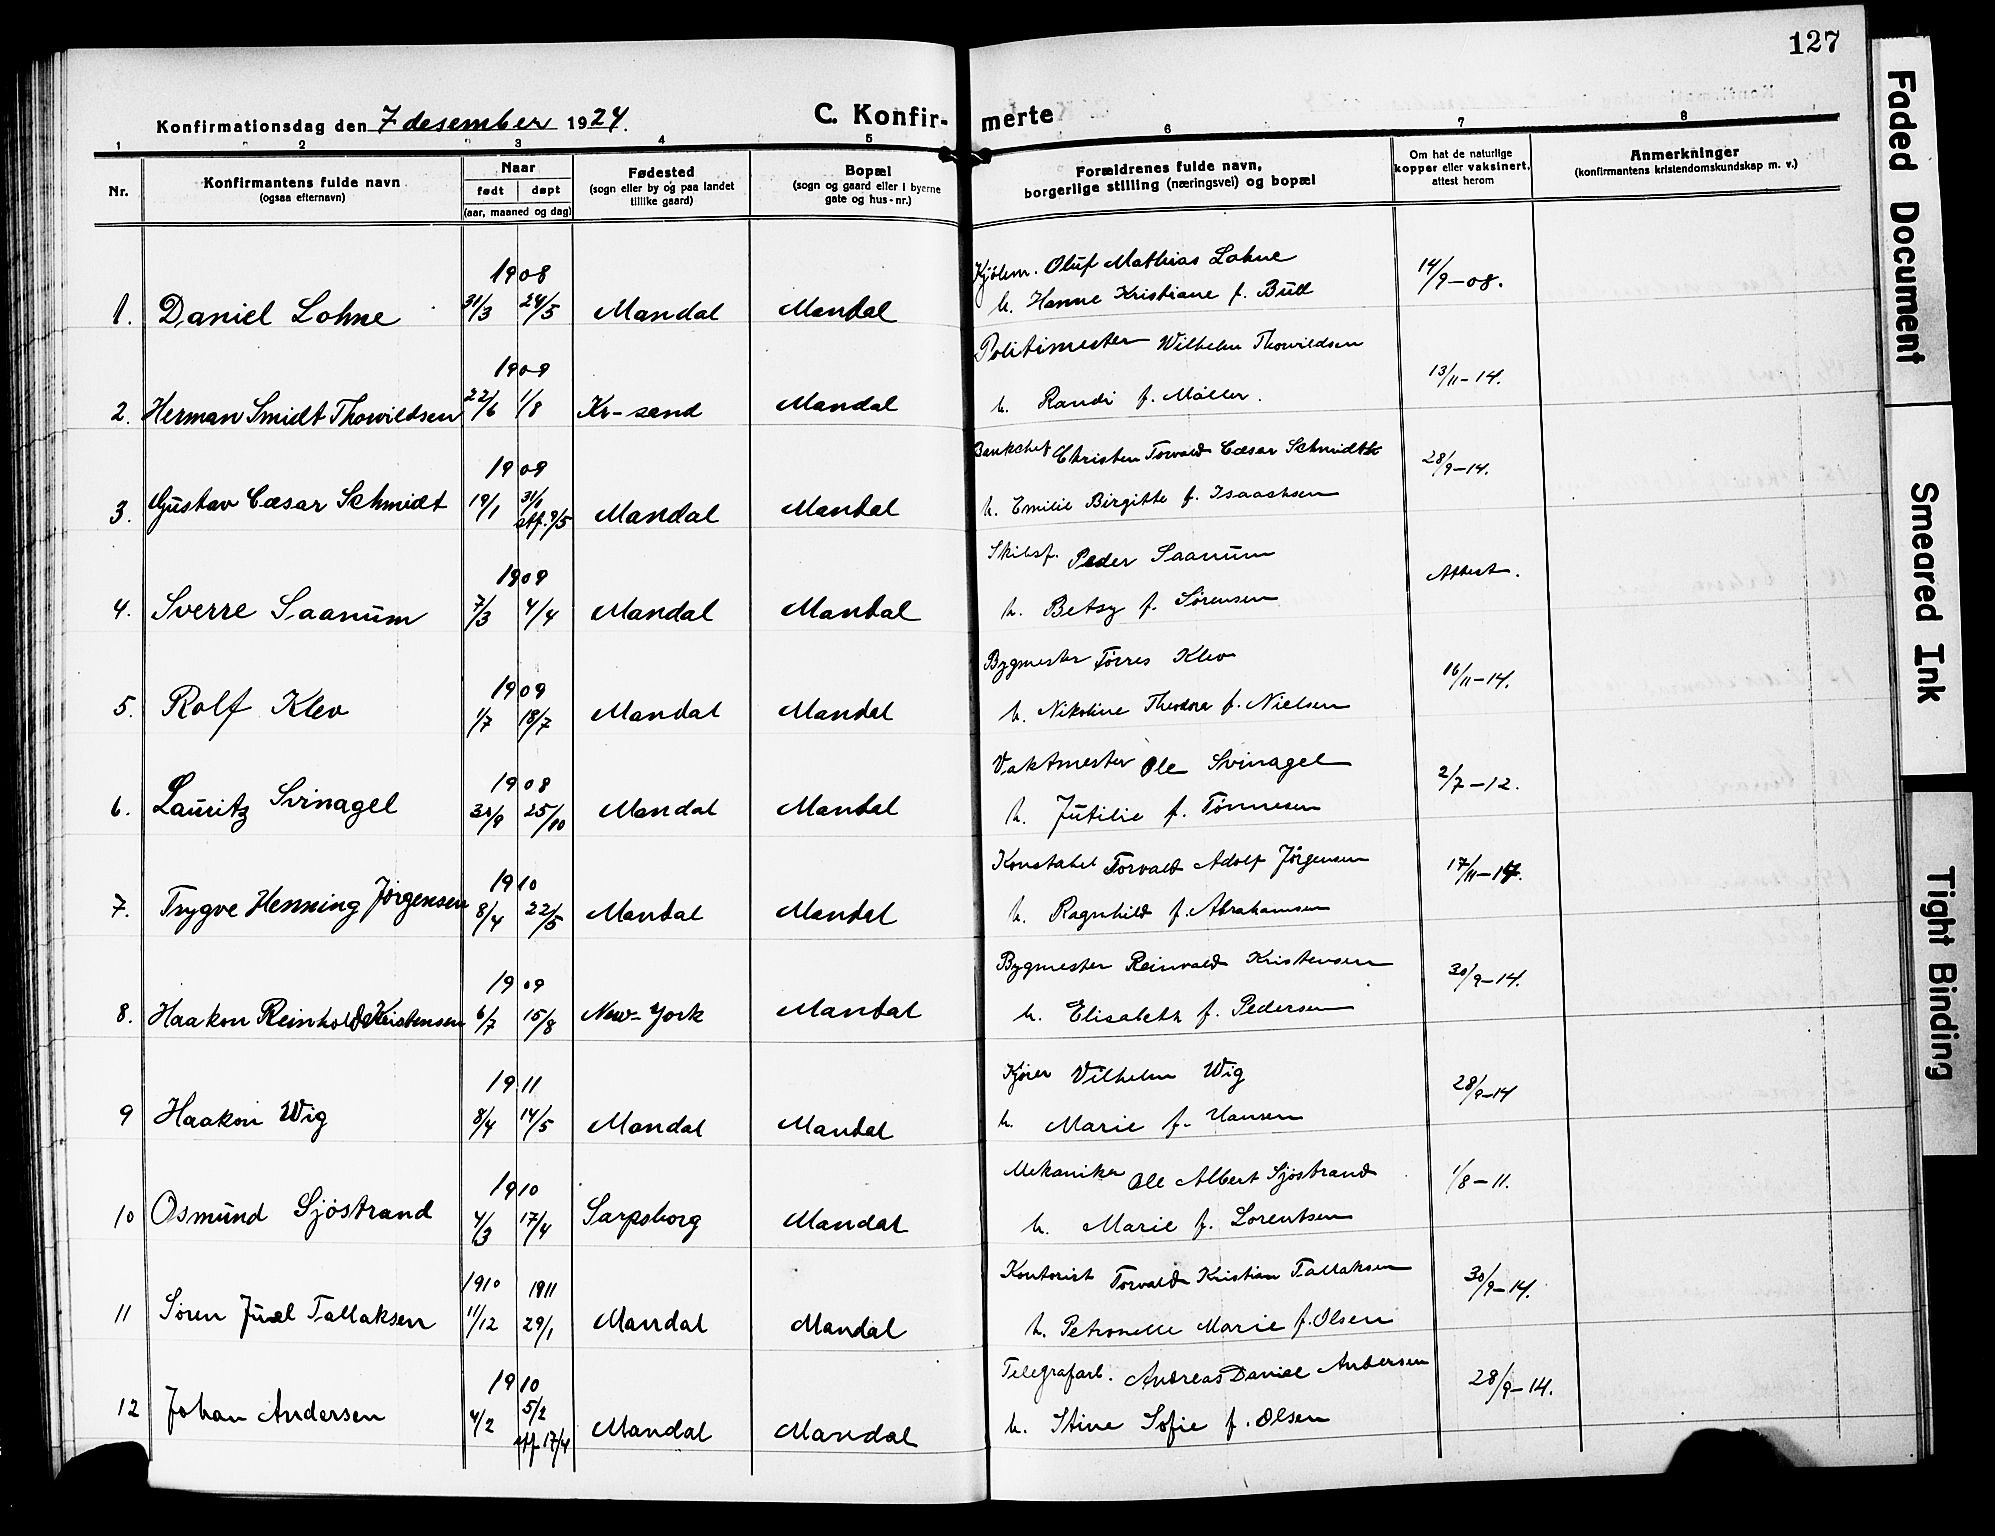 127
Konfirmationsdag den 7 desember 1924.
C. Konfirmerte
1 2 3 4 5 6 7 8
Nr.
Konfirmantens fulde navn
(ogsaa efternavn)
Naar
født døpt
(aar, maaned og dag)
Fødested
(sogn eller by og paa landet
tillike gaard)
Bopæl
(sogn og gaard eller i byerne
gate og hus-nr.)
Forældrenes fulde navn,
borgerlige stilling (næringsvei) og bopæl
Om hat de naturlige
kopper eller vaksinert,
attest herom
Anmerkninger
(konfirmantens kristendomskundskap m. v.)
1908
Oluf Mathias Lohne
1. Daniel Lohne 31/3 24/5 Mandal Mandal
h. Hanne Kristiane f. Bull 14/9-08.
1909
Politimester Wilhelm Thorvildsen
2. Herman Smidt Thorvildsen 22/6 1/8 Kr-sand Mandal
h. Randi f. Møller. 13/11-14.
1909
Bankchef Christen Torvald Cæsar Schmidt
3. Gustav Cæsar Schmidt 19/1 31/1 stf. 9/5 Mandal Mandal
h. Emilie Birgitte f. Isaachsen 28/9-14.
1909
Skibsf. Peder Saanum
4. Sverre Saanum 7/3 4/4 Mandal Mandal
h. Betsy f. Sørensen Attest.
1909
Bygmester Tørres Klev
5. Rolf Klev 1/7 18/7 Mandal Mandal
h. Nikoline Theodora f. Nielsen 16/11-14.
1908
Vaktmester Ole Svinagel
6. Lauritz Svinagel 25/10 Mandal Mandal
h. Jutilie f. Tønnesen 2/7-12.
1910
Konstabel Torvald Adolf Jørgensen
7. Trygve Henning Jørgensen 8/4 22/5 Mandal Mandal
h. Ragnhild f. Abrahamsen 17/11-14.
1909
Bygmester Reinvald Kristensen
8. Haakon Reinhold Kristensen 6/7 15/8 New-York Mandal
h. Elisabeth f. Pedersen 30/9-14.
1911
Kjører Vilhelm Wig
9 Haakon Wig 8/4 14/5 Mandal Mandal
h. Marie f. Hansen 28/9-14
1910
Mekaniker Ole Albert Sjøstrand
10 Osmund Sjøstrand 4/3 17/4 Sarpsborg Mandal
h. Marie f. Lorentsen 1/8-11.
1910 1911
Kontorist Torvald Kristian Tallaksen
11 Søren Juel Tallaksen 11/12 29/1 Mandal Mandal
h. Petronelle Marie f. Olsen 30/9-14.
1910
Telegrafarb. Andreas Daniel Andersen
12 Johan Andersen 4/2 5/2 stf. 17/4 Mandal Mandal
h. Stine Sofie f. Olsen 28/9-14.
Faded Document
Smeared Ink
Tight Binding